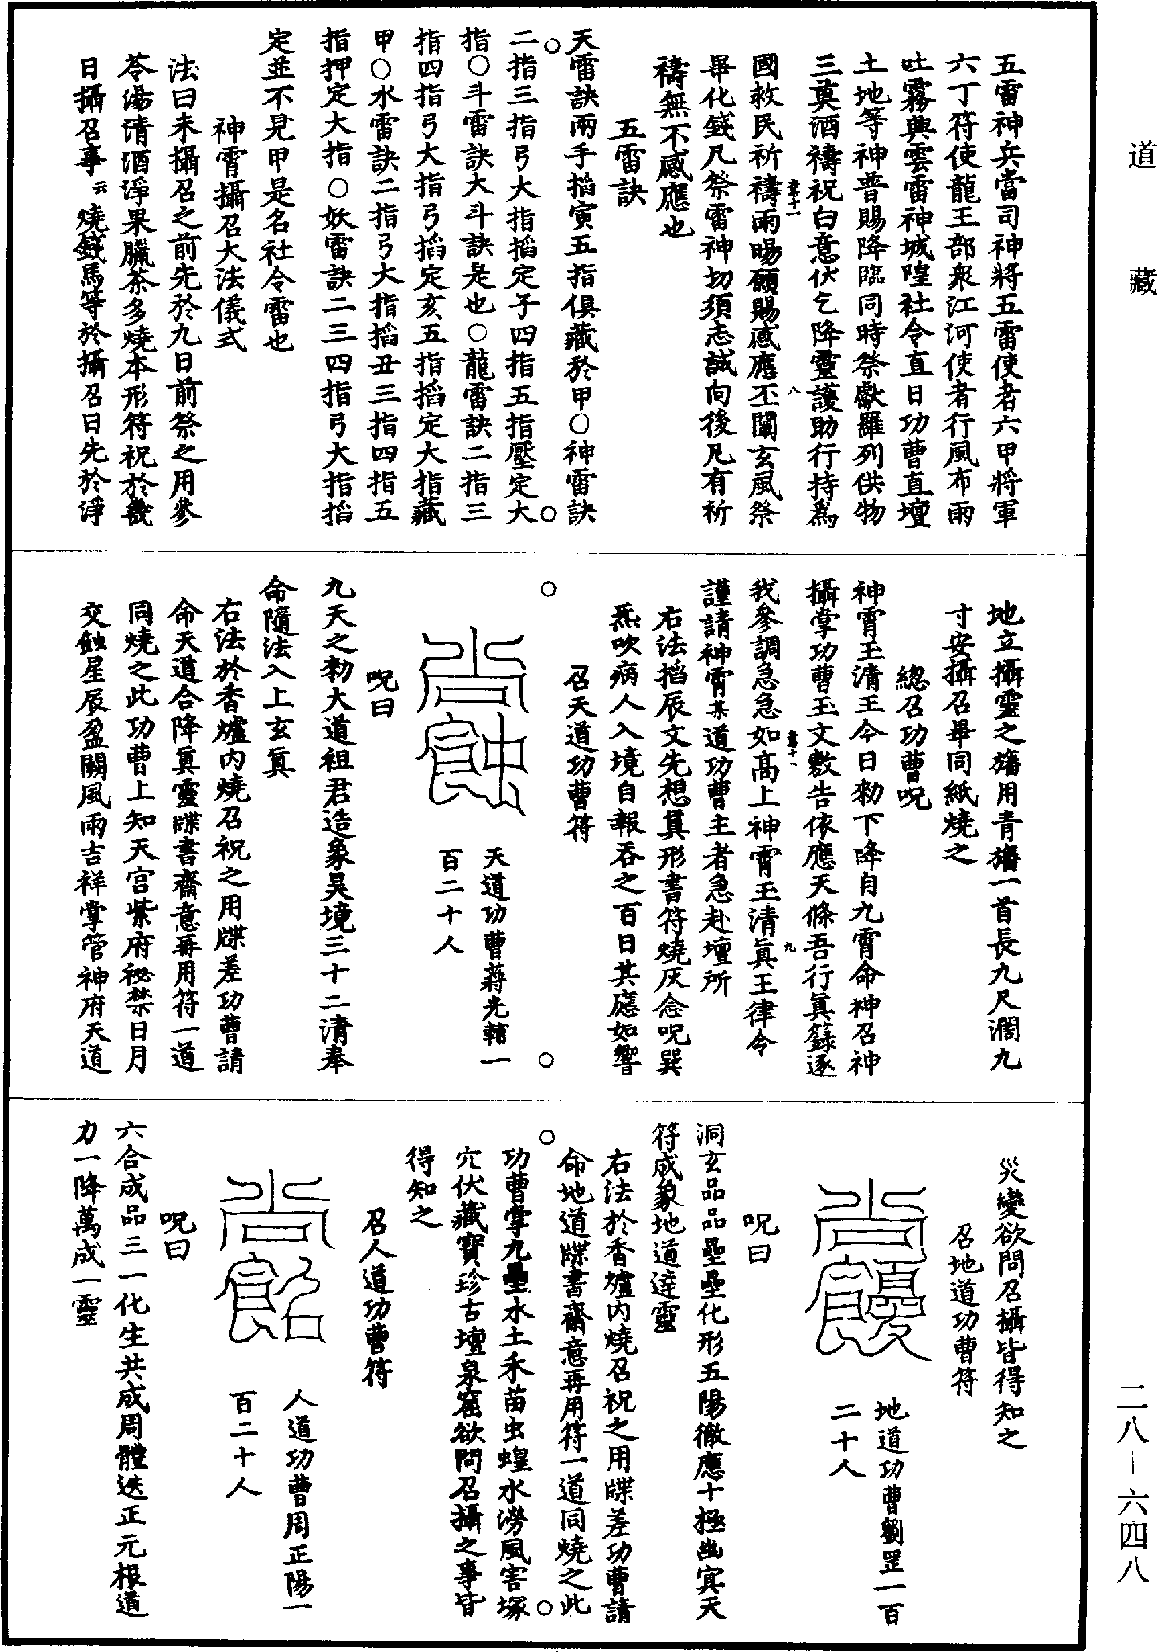 道藏
五雷神兵當司神將五雷使者六甲將軍
六丁符使龍王部衆江河使者行風布雨
吐霧興雲雷神城隍社令直日功曹直壇
土地等神普賜降臨同時祭獻羅列供物
三奠酒禱祝白意伏乞降靈護助行持爲
國救民祈禱雨暘願賜感應丕闡玄風祭
畢化錢凡祭雷神切須志誠向後凡有祈
禱無不感應也
五雷訣
天雷訣兩手掐寅五指俱藏於甲○神雷訣
二指三指弓大指掐定子四指五指壓定大
指○斗雷訣大斗訣是也○龍雷訣二指三
指四指弓大指弓掐定亥五指掐定大指藏
甲○水雷訣二指弓大指掐丑三指四指五
指押定大指○妖雷訣二三四指弓大指掐
定並不見甲是名社令雷也
神霄攝召大法儀式
法曰未攝召之前先於九日前祭之用參
苓湯清酒淨果臘茶多燒本形符祝於幾
日攝召事云云燒錢馬等於攝召日先於淨
地立攝靈之旛用青旛一首長九尺濶九
寸安攝召畢同紙燒之
總召功曹呪
神霄玉清王今日勑下降自九霄命神召神
攝掌功曹玉文敷告依應天條吾行眞籙逐
我參調急急如高上神霄玉清眞王律令
謹請神霄某道功曹主者急赴壇所
右法掐辰文先想其形書符燒灰念呪巽
炁吹病人入境自報吞之百日其應如響
召天道功曹符
天道功曹蔣光轄一
百二十人
呪曰
九天之勑大道祖君造象昊境三十二清奉
命隨法入上玄眞
右法於香爐内燒召祝之用牒差功曹請
命天道合降眞靈牒書齋意再用符一道
同燒之此功曹上知天宫紫府祕禁日月
交蝕星辰盈闕風雨吉祥掌管神府天道
災變欲問召攝皆得知之
召地道功曹符
地道功曹劉罡一百
二十人
呪曰
洞玄品品壘壘化形五陽徹應十極幽寘天
符成象地道達靈
右法於香爐内燒召祝之用牒差功曹請
命地道牒書齋意再用符一道同燒之此
功曹掌九壘水土禾苗虫蝗水澇風害塚
穴伏藏寶珍古壇泉窟欲問召攝之事皆
得知之
召人道功曹符
人道功曹周正陽一
百二十人
呪曰
六合成品三一化生共成周體迭正元根道
力一降萬成一靈
二八—六四八